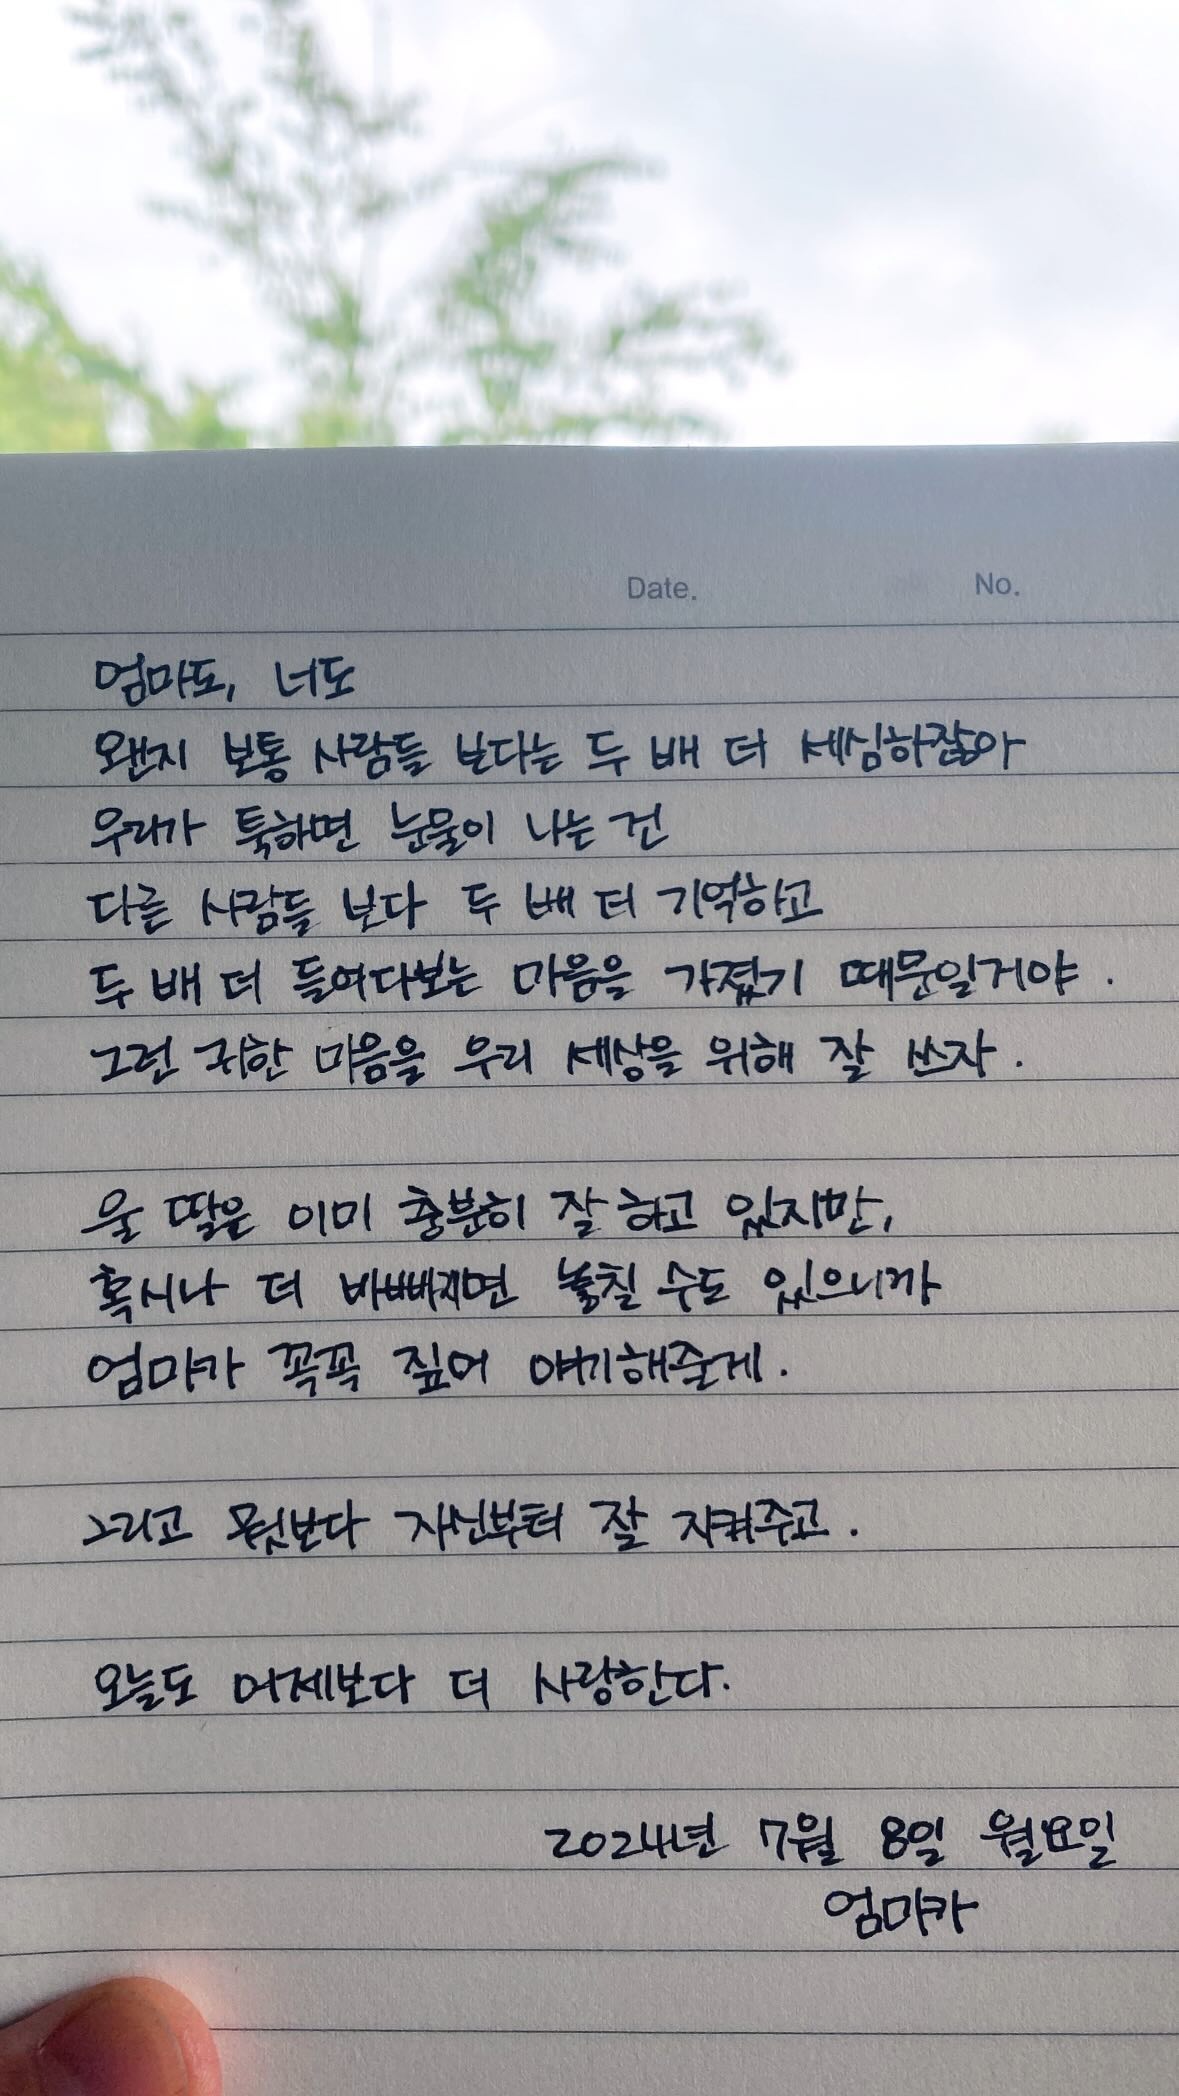 Date. No.
엄마도, 너도
왠지 보통 사람들 보다는 두 배 더 세심하잖아
우리가 툭하면 눈물이 나는 건
다른 사람들 보다 두 배 더 기억하고
두 배 더 들여다보는 마음을 가졌기 때문일거야.
그런 귀한 마음을 우리 세상을 위해 잘 쓰자.
울 딸은 이미 충분히 잘 하고 있지만,
혹시나 더 바빠지면 놓칠 수도 있으니까
엄마가 꼭꼭 짚어 얘기해줄게.
그리고 뭣보다 자신부터 잘 지켜주고.
오늘도 어제보다 더 사랑한다.
2024년 7월 8일 월요일
엄마가